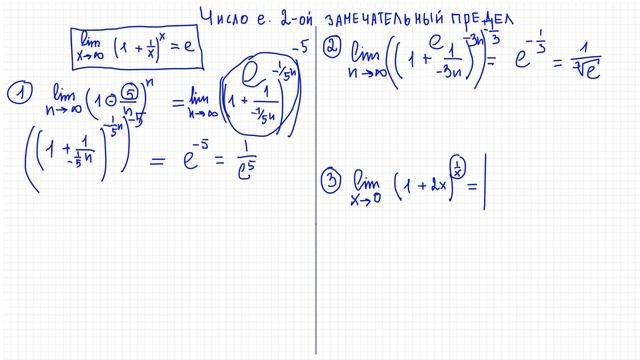 Число e. 2-ой замечательный предел
lim x→∞ (1 + 1/x)^x = e
① lim n→∞ (1 - 5/n)^n = lim n→∞ ((1 + 1/(-1/5n))^(-1/5n))^-5 e
((1 + 1/(-1/5 n))^(-1/5n))^-5 = e^-5 = 1/e^5
② lim n→∞ ((1 + 1/-3n)^-3n)^(-1/3) = e^(-1/3) = 1/∛e
e
③ lim x→0 (1 + 2x)^(1/x) = |